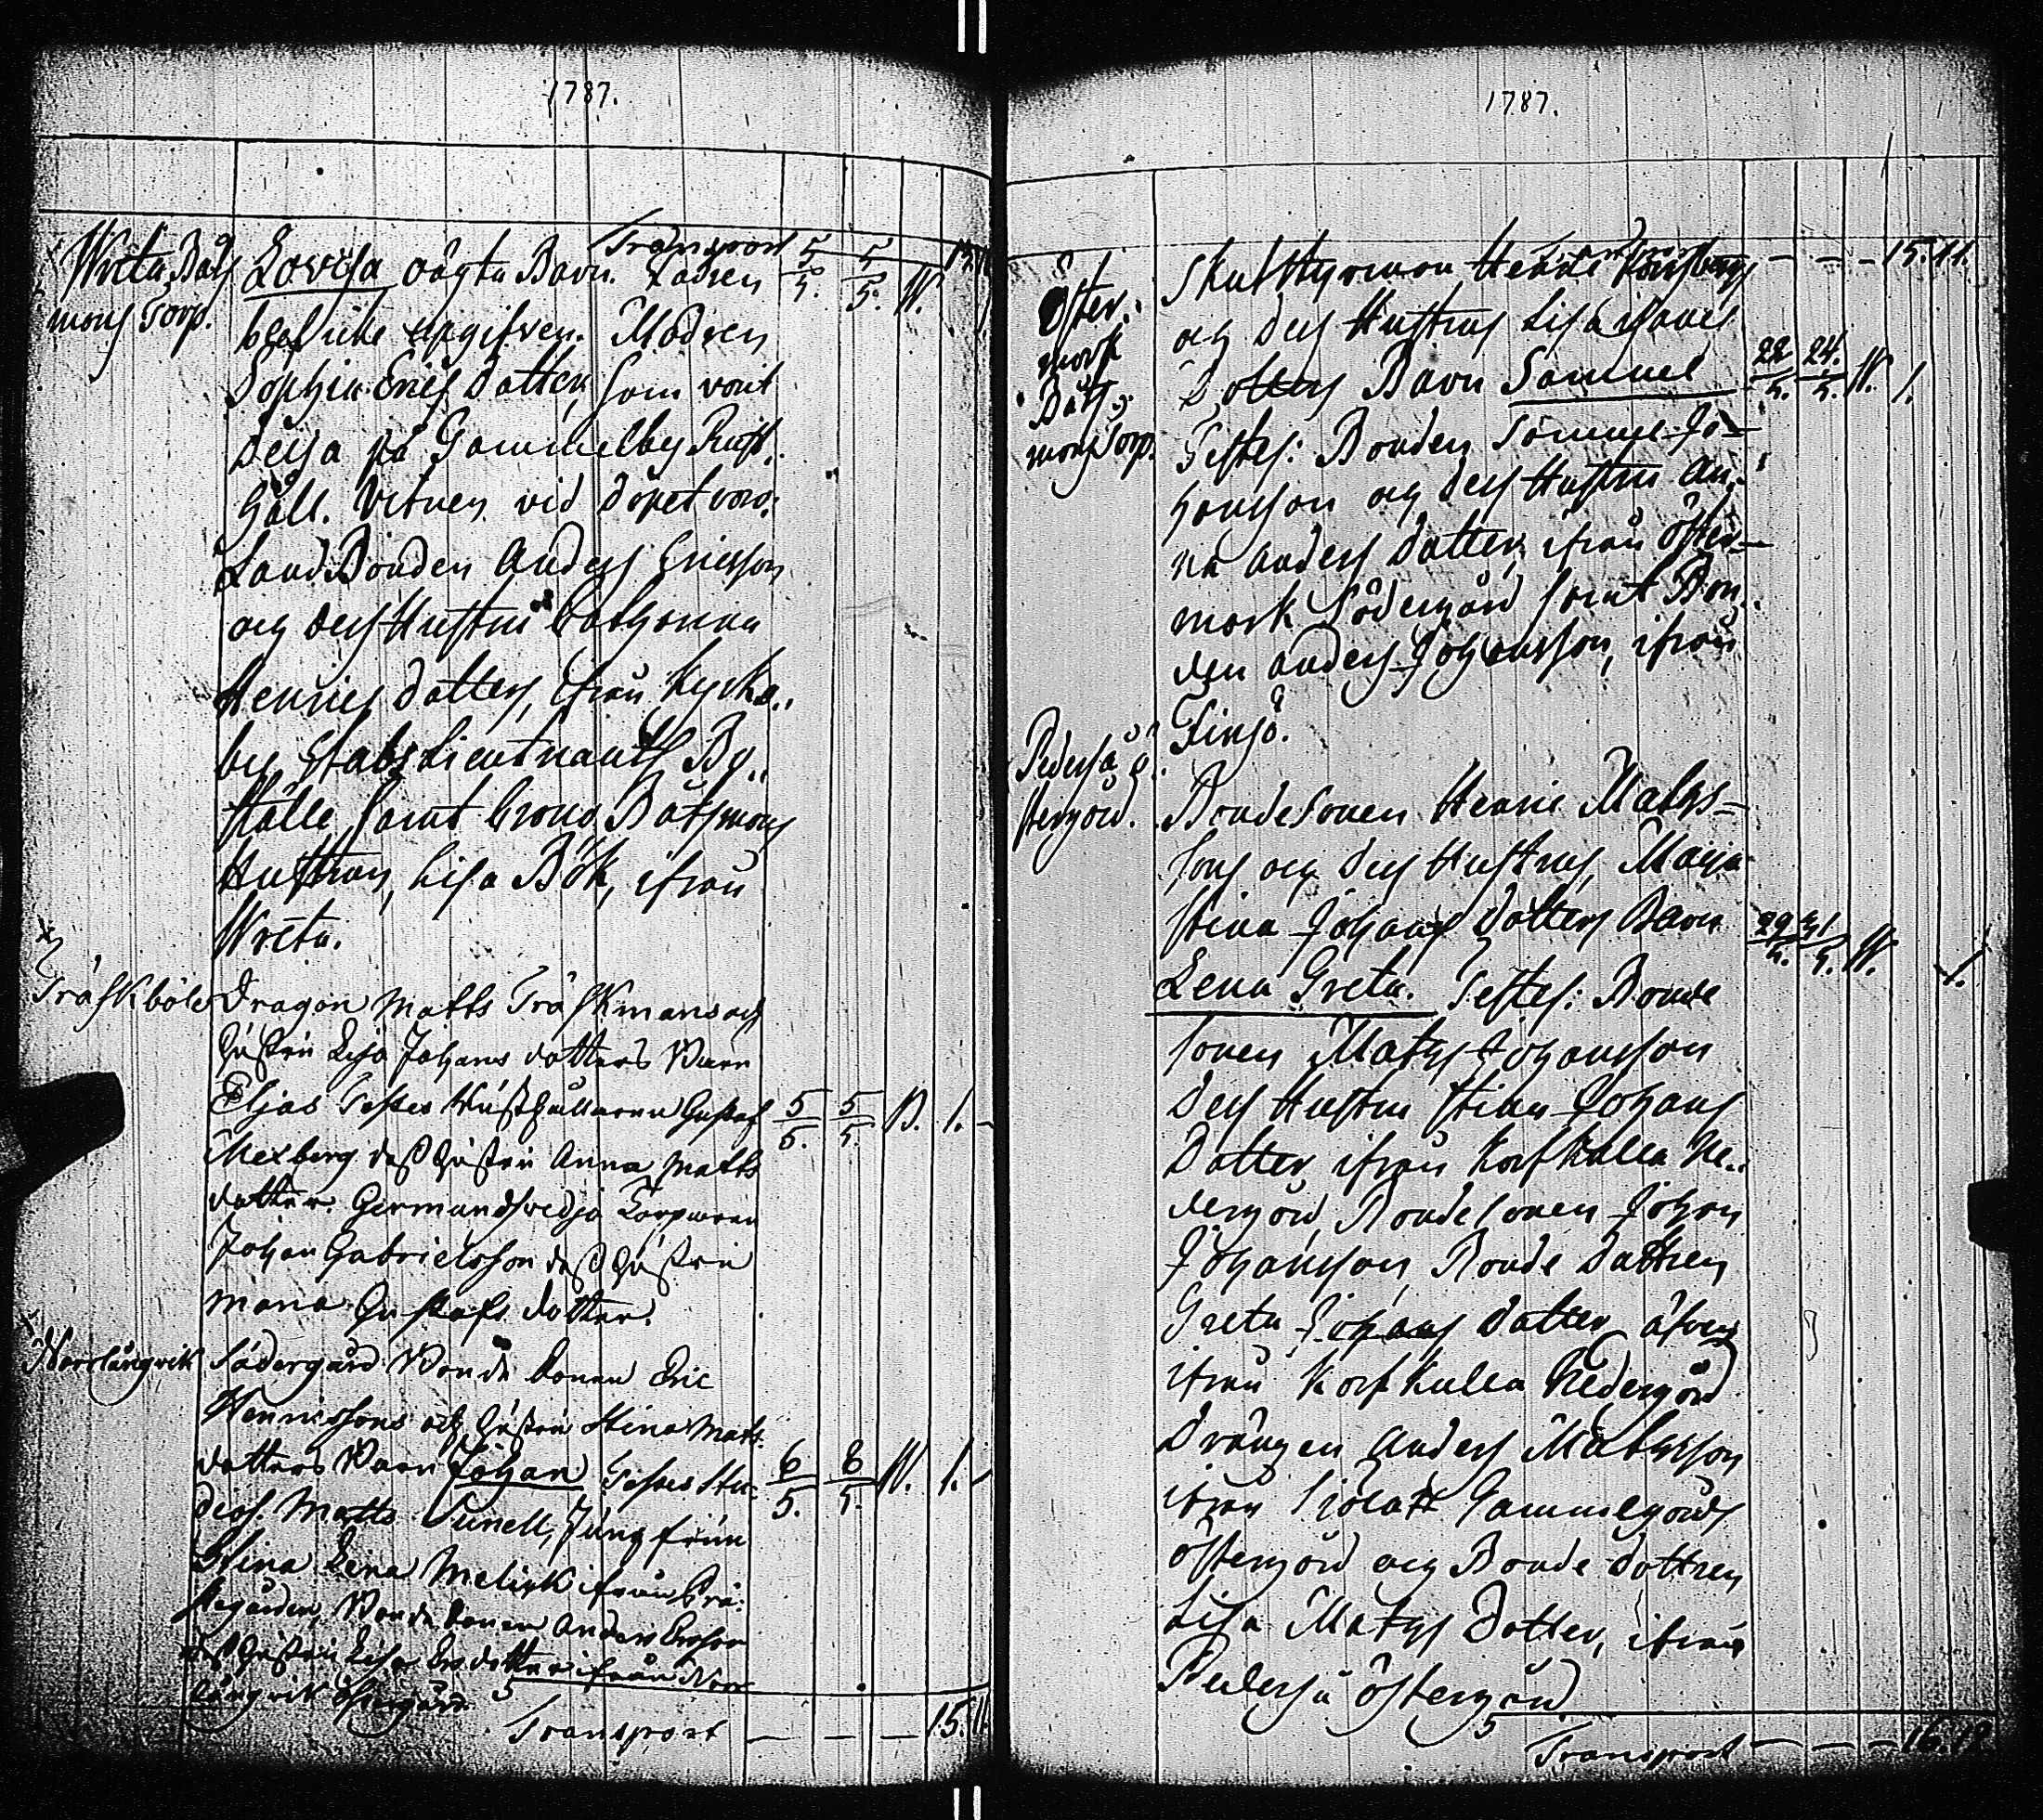 1787.
Transport 13 11
Wreta Båtsmans Torp.
Lovisa oägta Barn. Fadren 5/5. 5/5. W.
blef icke upgifven. Modren
Sophia Erics Dotter, som varit
Deija på Gammelby Rust-
håll. Vitnen vid Döpet voro:
LandBonden Anders Ericsson
och dess Hustru Catharina
Henrics Dotter, ifrån Kycka-
by StabsLieutnants Bo-
ställe, samt Crono Båtsmans
Hustrun, Lisa Bök, ifrån
Wreta.
Träskböle
Dragon Matts Träskmans och
hustru Lisa Johans dotters Barn
Eljas Testes Rusthållaren Gustaf 5/5. 5/5. W. 1.
Mexberg dess hustru Anna Matts
dotter. Germundsvedja Torparen
Johan Gabrielsson dess hustru
Maria Gustafs dotter.
Norrlångvik
Södergård Bonde Sonen Eric
Henricssons och hustru Stina Mats-
dotters Barn Johan Testes Stu- 6/5. 8/5. W. 1.
dios. Matts Sunell, Jungfrun
Stina Lena Melick ifrån Prä-
stegården, Bonde Sonen Anders Ersson
dess hustru Lisa Ersdotter ifrån Norr
långvik Östergård.
Transport — — — 15. 11.
1787.
Transport — — — 15. 11.
Östermark Båtsmans Torp.
Skutstyrman Henric
och dess Hustrus Lisa Isaacs
Dotters Barn Samuel 22/5. 24/5. W. 1.
Testes: Bonden Samuel Jo-
hansson och dess Hustru An-
na Anders Dotter, ifrån Öster-
mark Södergård samt Bon-
den Anders Johansson, ifrån
Finsjö.
Pederså Östergård.
BondeSonen Henric Maths-
sons och dess Hustrus, Maja
Stina Johans Dotters Barn 29/5. 31/5. W. 1.
Lena Greta. Testes: Bonde
Sonen Maths Johansson
dess Hustru Stina Johans
Dotter ifrån Korskulla Ne-
dergård, BondeSonen Johan
Johansson, Bonde Dottren
Greta Johans Dotter, äfven
ifrån Korskulla Nedergård
Drängen Anders Mathsson
ifrån Sjölax Gammelgårds
Östergård och Bonde Dottren
Lisa Maths Dotter, ifrån
Pederså Östergård.
Transport — — — 16. 12